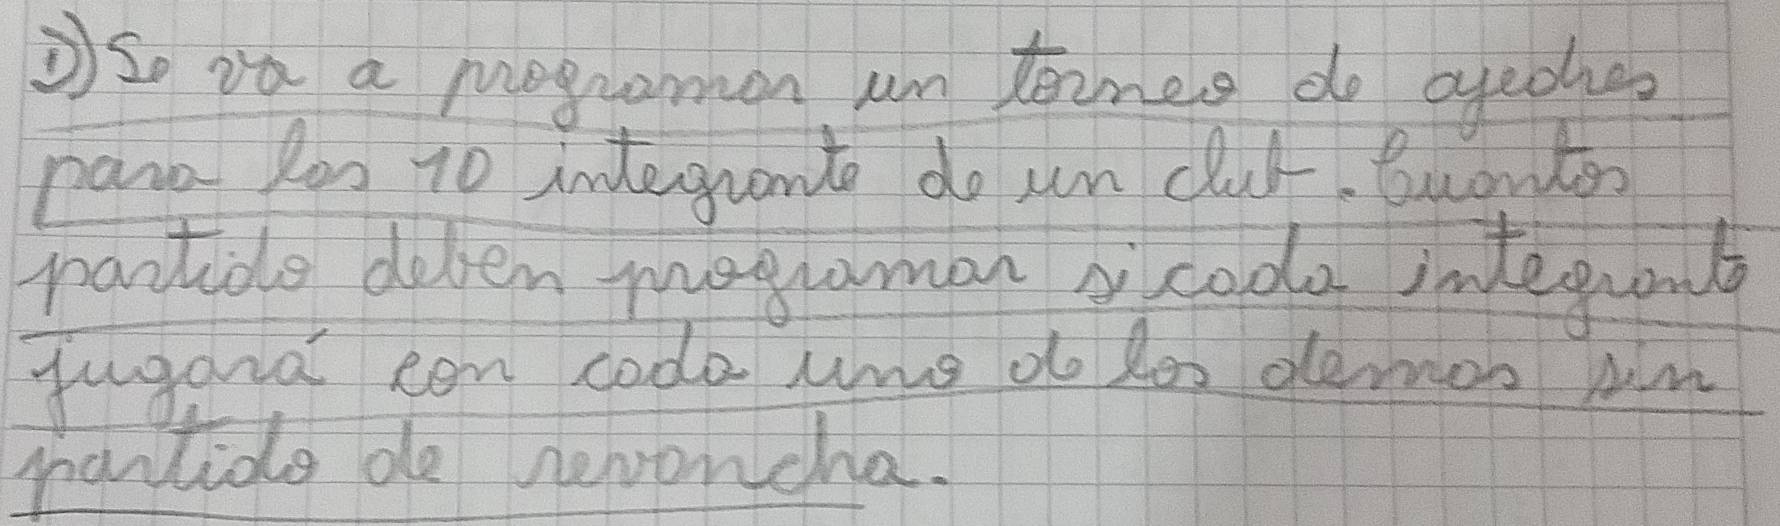 D) Se va a programar un torneo de ajedres
para los 10 integrante de un club. Cuantos
partido deben programar si cada integrante
jugará con cada uno de los demas sin
partido de revancha.